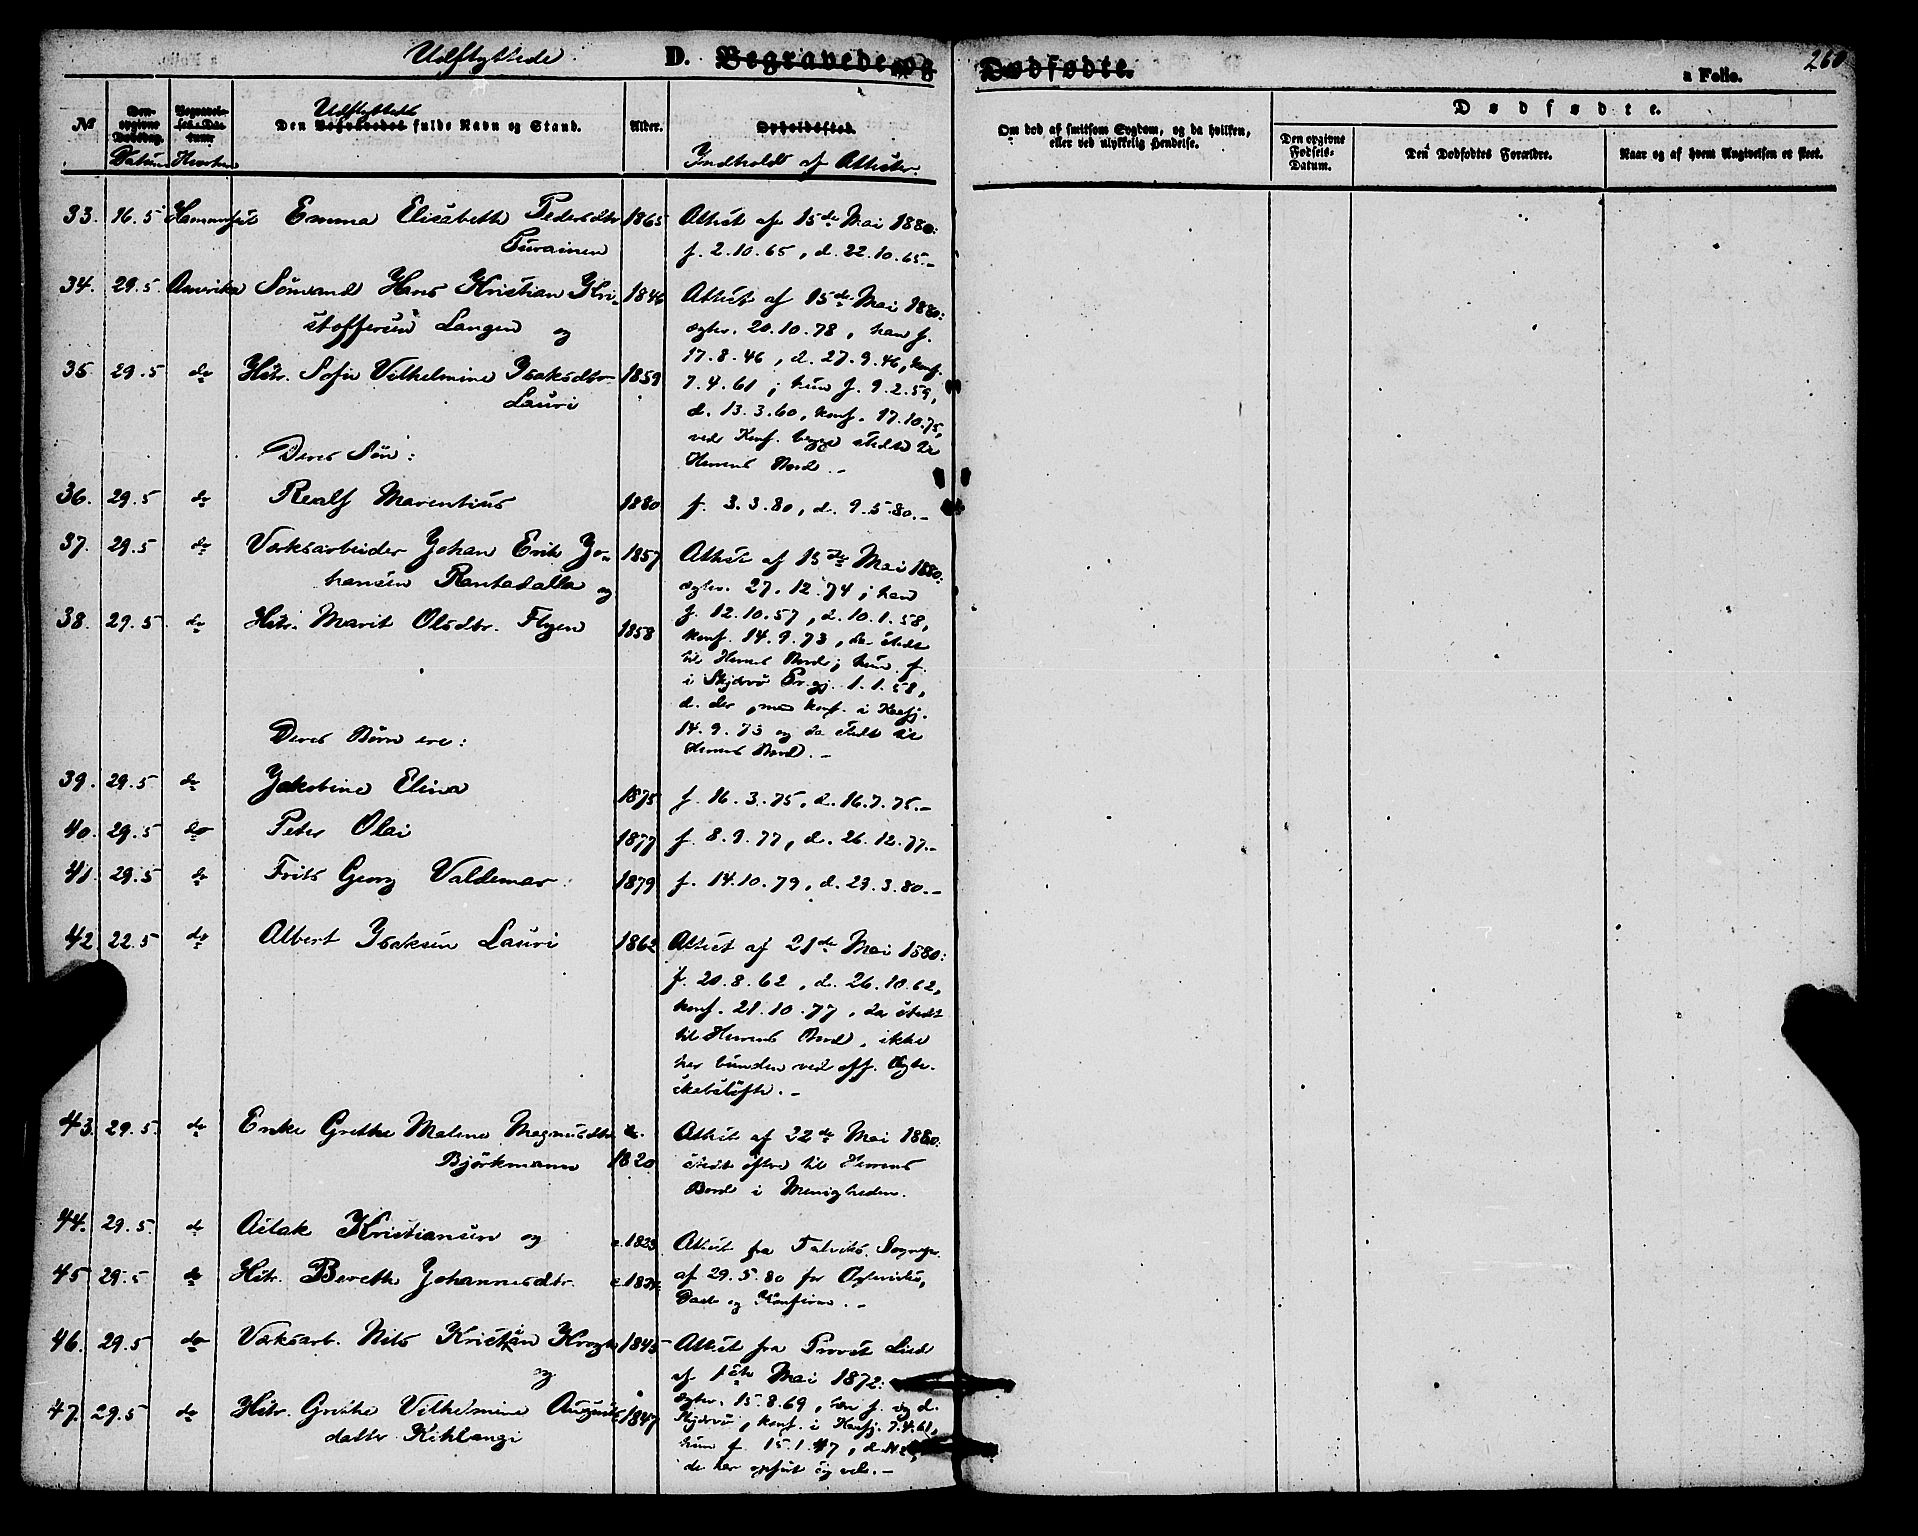 Udflyttede. D. Begravede og Dødfødte. a Folio. 260
No
Den opgivne Dødsdag. Datum
Begravelses-Datum Hvorhen
Udflyttede
Den Begravedes fulde Navn og Stand.
Alder.
Opholdssted.
Indhold af Attester.
Om død af smitsom Sygdom, og da hvilken,
eller ved ulykkelig Hendelse.
Dødfødte.
Den opgivne Fødsels-Datum.
Den Dødfødtes Forældre.
Naar og af hvem Angivelsen er skeet.
33. 16.5 Emma Elisabeth Pedersdtr 1865 Attest af 15de Mai 1880:
f. 2.10.65, d. 22.10.65.-
34. 29.5. Amerika Sömand Hans Kristian Kri- 1846 Attest af 15de Mai 1880:
stoffersen Langen og
ægtev. 20.10.78, han f.
17.8.46, d. 27.9.46, konf.
35 29.5 do Hstr. Sofie Vilhelmine Isaksdtr. 1859 7.4.61; hun f. 9.2.59,
Lauri
d. 13.3.60, konf. 17.10.75,
ved Konf. begge stedte til
Deres Søn:
Herrens Bord.-
36. 29.5 do Realf Marentius 1880 f. 3.3.80, d. 9.5.80.-
37. 29.5 do Værksarbeider Johan Erik Jo- 1857 Attest af 15de Mai 1880:
hansen Rantadalla og
ægtev. 27.12.74; han
f. 12.10.57, d. 10.1.58,
38. 29.5 do Hstr. Marit Olsdtr. Flyen 1858 konf. 14.9.73, da stedt
til Herrens Bord; hun f.
i Skjervö Pr.gj. 1.1.58,
d. der, men konf. i Kaafj.
14.9.73 og da stedt til
Deres Børn ere:
Herrens Bord.-
39. 29.5 do Jakobine Elina 1875 f. 16.3.75, d. 16.7.75.-
40. 29.5 do Peter Olai 1877 f. 8.9.77, d. 26.12.77.-
41. 29.5 do Frits Georg Valdemar. 1879 f. 14.10.79, d. 29.3.80.-
42 22.5 do Albert Isaksen Lauri 1862 Attest af 21de Mai 1880:
f. 20.8.62, d. 26.10.62,
konf. 21.10.77, da stedt
til Herrens Bord, ikke
her bunden ved off. Ægte-
skabsløfte.-
43. 29.5. do Enke Grethe Malene Magnusdtr c. Attest af 22de Mai 1880:
Björkmann 1820 stedt oftere til Herrens
Bord i Menigheden.
44. 29.5. do Aslak Kristiansen og c. 1823 Attest fra Talviks Sognepr.
45 29.5 do Hstr. Berethe Johannesdtr. af 29.5.80 for Ægtevielse,
Daab og Konfirm.-
46. 29.5 do Værksarb. Nils Kristian Krogh 1845 Attest fra Provst Lind
og
af 1ste Mai 1872:
ægtev. 15.8.69, han f. og d.
47. 29.5 do Hstr. Grethe Vilhelmine Augusts- 1847 Skjervö, konf. i Kaafj. 7.4.61,
datter Kihlangi
hun f. 15.1.47,
de har opført sig vel.-